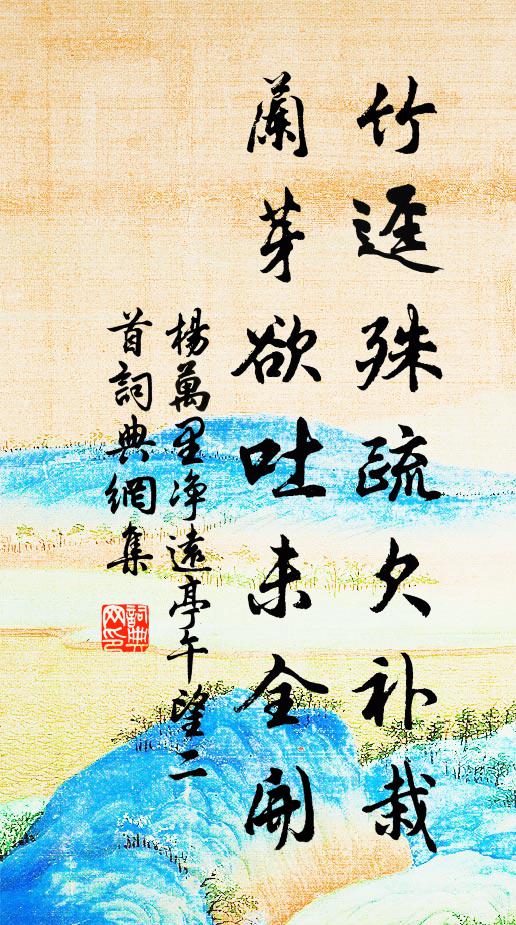 竹逕殊疏欠补栽
蘭芽欲吐未全開
楊萬里净遠亭午望二
首詞典網集
詞典
网印